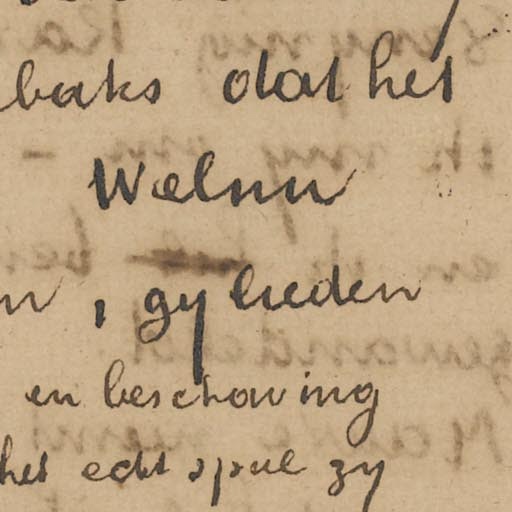 baks dat het
Welnu
, gy lieden
en beschowing
het echt spul zy